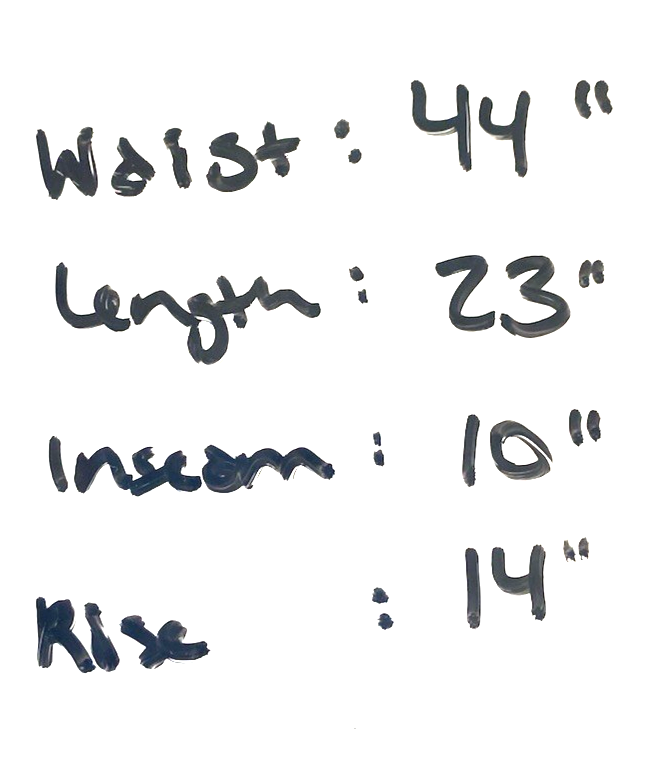 Waist : 44"
Length : 23"
Inseam : 10"
Rise : 14"